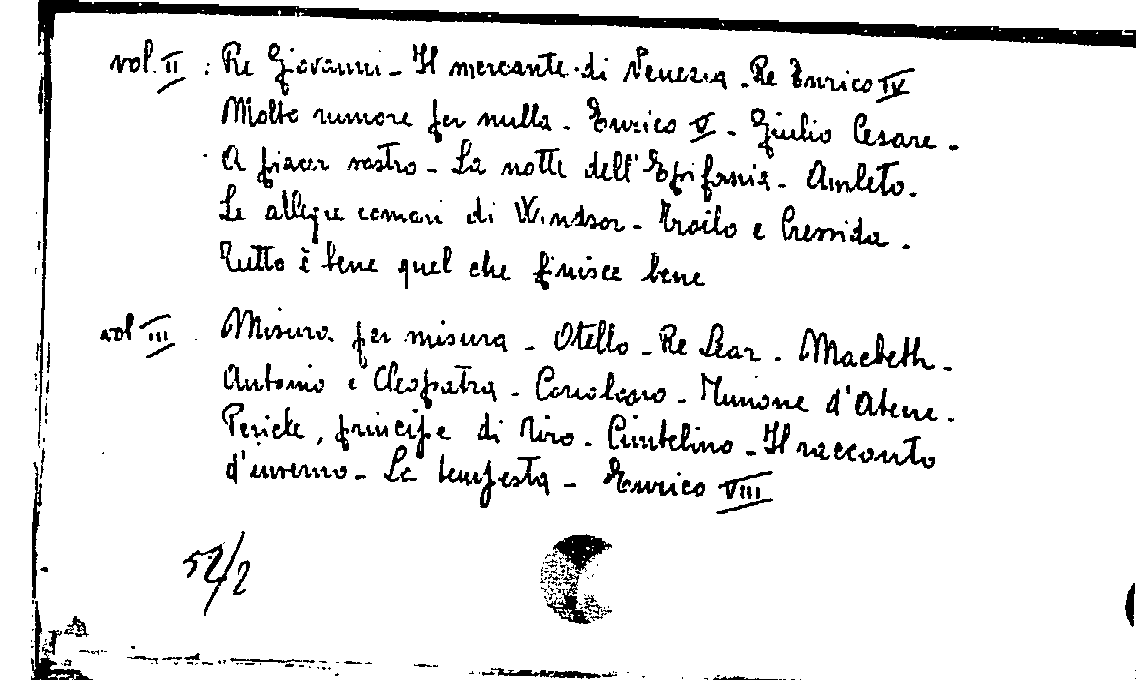 vol. II : Re Giovanni - Il mercante di Venezia - Re Enrico IV
Molto rumore per nulla - Enrico V - Giulio Cesare -
A piacer vostro - La notte dell'Epifania - Amleto -
Le allegre comari di Windsor - Troilo e Cressida -
Tutto è bene quel che finisce bene
vol III Misura per misura - Otello - Re Lear - Macbeth -
Antonio e Cleopatra - Coriolano - Timone d'Atene -
Pericle, principe di Tiro - Cimbelino - Il racconto
d'inverno - La tempesta - Enrico VIII
52/2